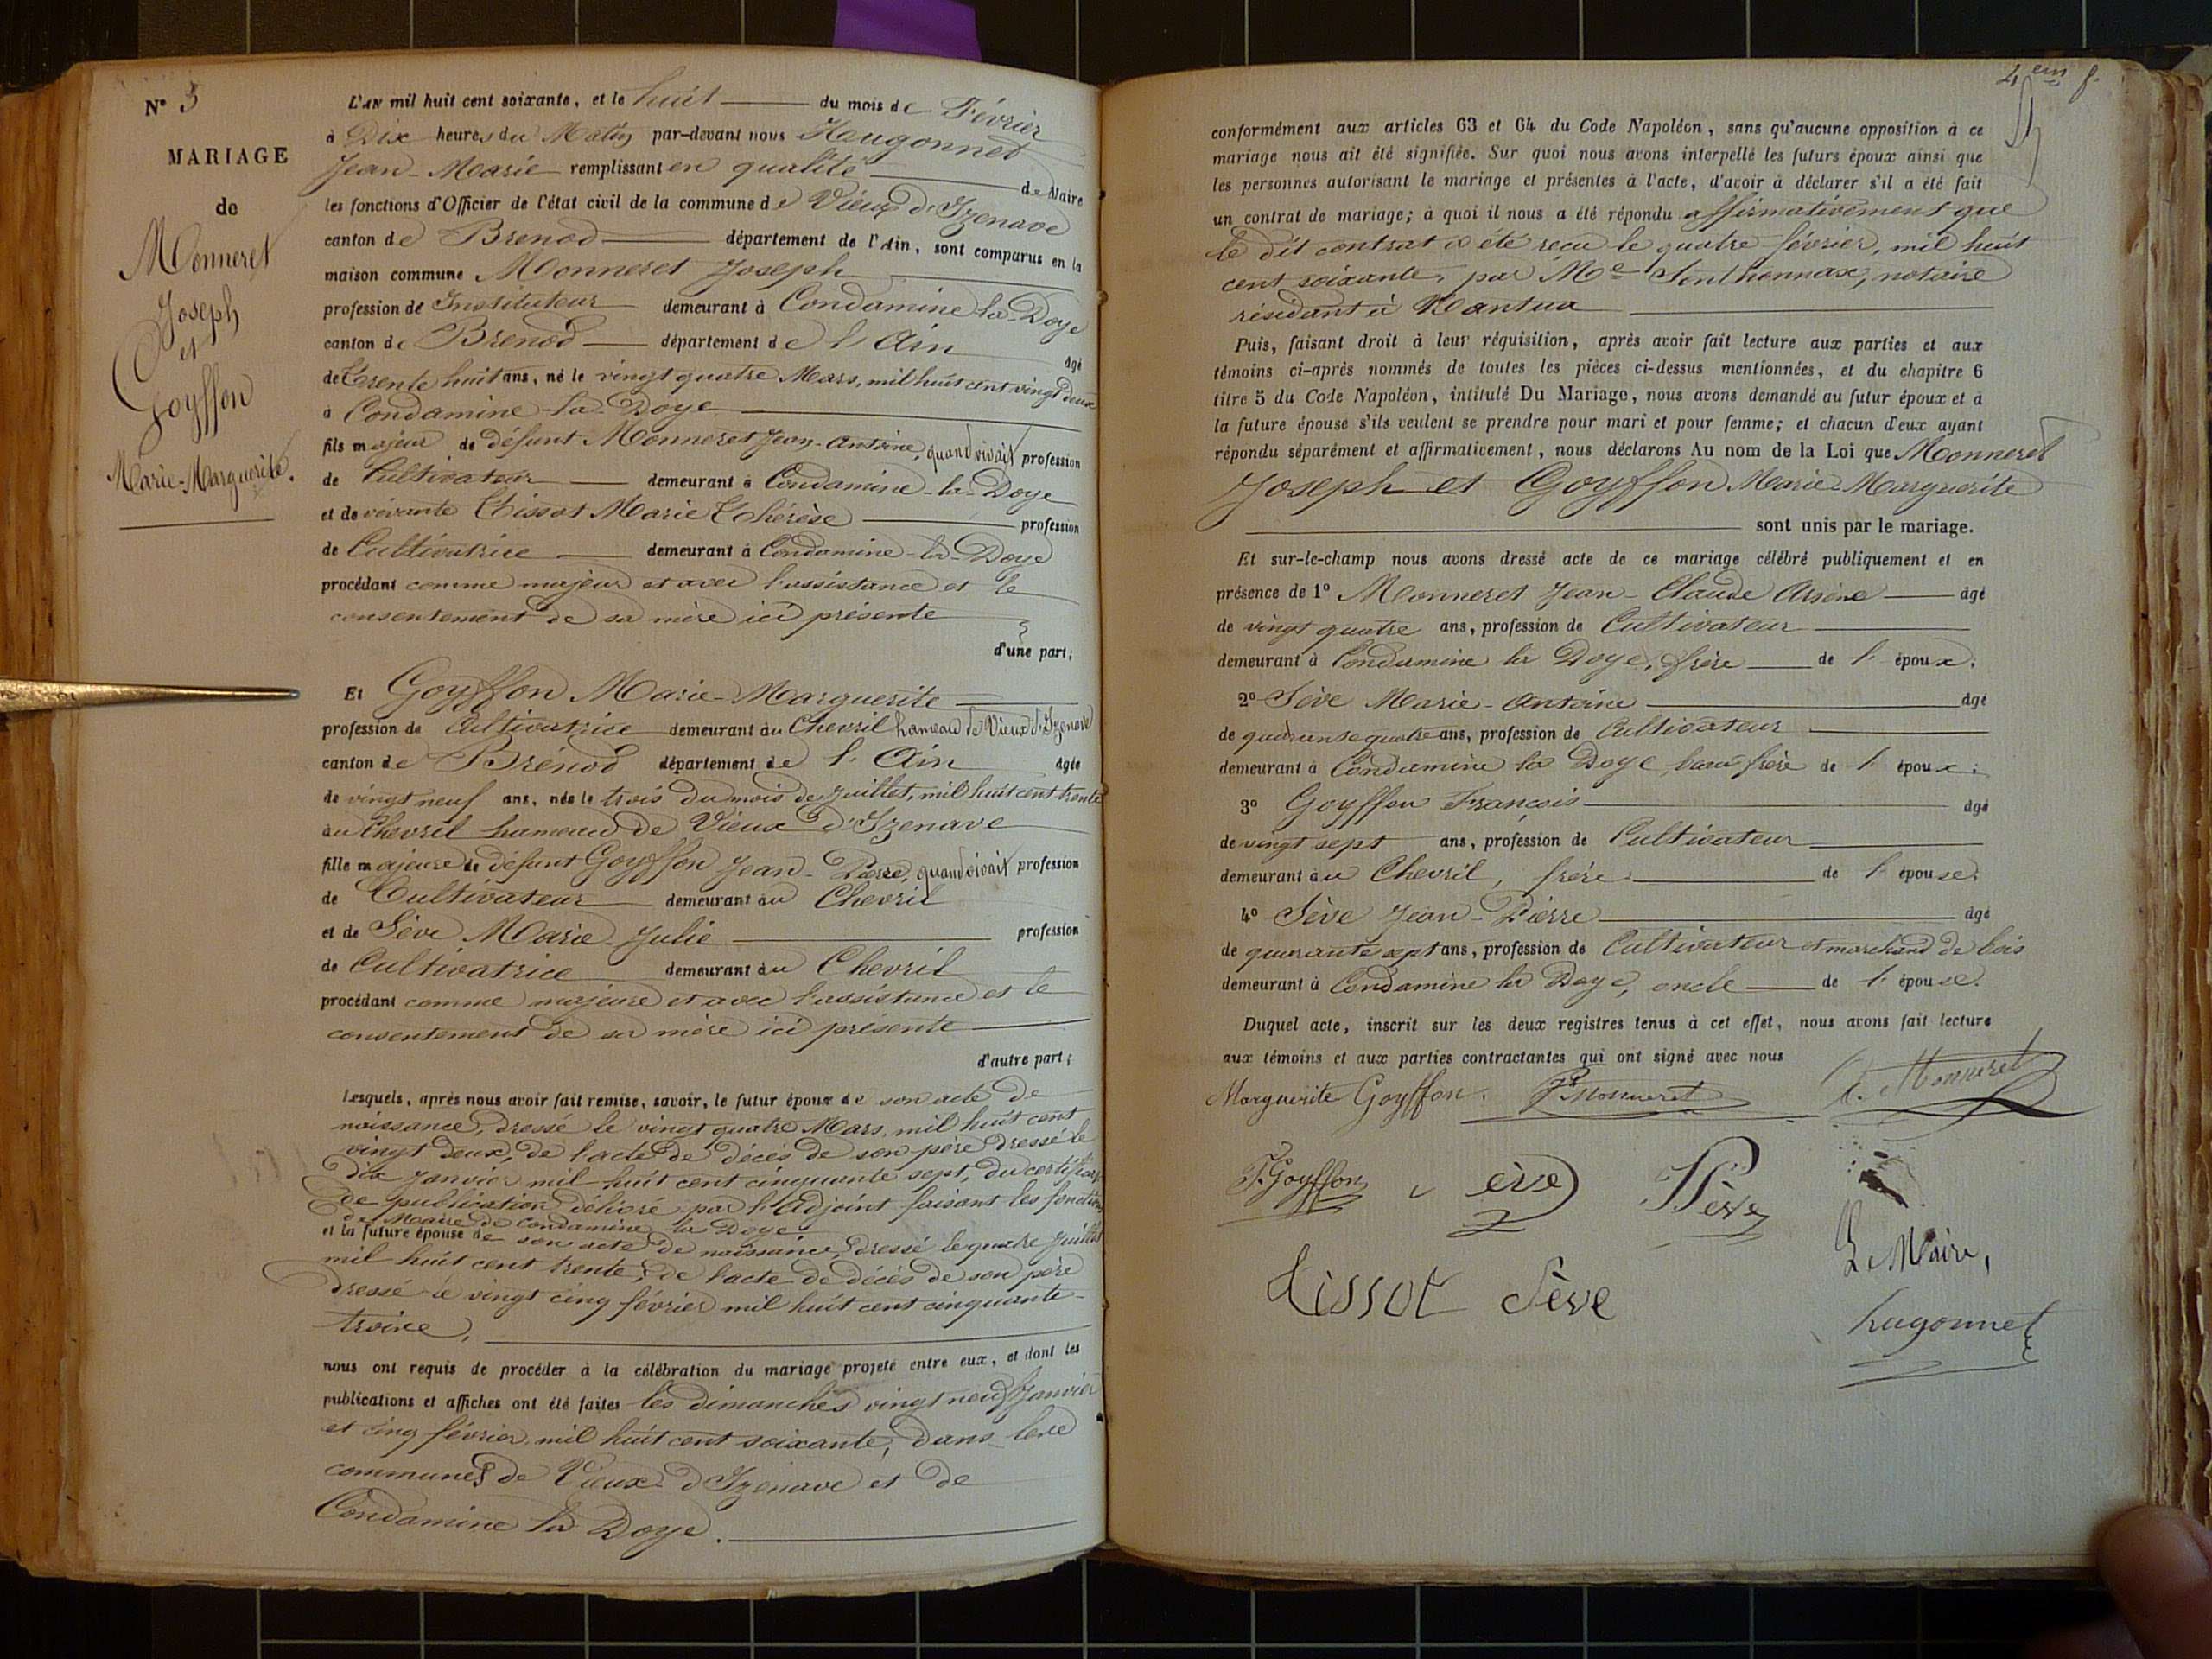 N° 3
MARIAGE
de
Monneret
Joseph
et
Goyffon
Marie-Marguerite.
L'AN mil huit cent soixante, et le huit du mois de Février
à Dix heures du Matin par-devant nous Hugonnet
Jean-Marie remplissant en qualité de Maire
les fonctions d'Officier de l'état civil de la commune de Vieux d'Izenave
canton de Brenod département de l'Ain, sont comparus en la
maison commune Monneret Joseph
profession de Instituteur demeurant à Condamine-la-Doye
canton de Brenod département de l'Ain âgé
de trente huit ans, né le vingt quatre Mars, mil huit cent vingt deux
à Condamine-la-Doye
fils majeur de défunt Monneret Jean-Antoine, quand vivait profession
de Cultivateur demeurant à Condamine-la-Doye
et de vivante Tissot Marie Thérèse profession
de Cultivatrice demeurant à Condamine-la-Doye
procédant comme majeur et avec l'assistance et le
consentement de sa mère ici présente
d'une part;
Et Goyffon Marie-Marguerite
profession de Cultivatrice demeurant au Chevril hameau de Vieux d'Izenave
canton de Brénod département de l'Ain âgée
de vingt neuf ans, née le trois du mois de Juillet, mil huit cent trente
au Chevril hameau de Vieux d'Izenave
fille majeure de défunt Goyffon Jean-Pierre, quand vivait profession
de Cultivateur demeurant au Chevril
et de Sève Marie-Julie profession
de Cultivatrice demeurant au Chevril
procédant comme majeure et avec l'assistance et le
consentement de sa mère ici présente
d'autre part;
Lesquels, après nous avoir fait remise, savoir, le futur époux de son acte de
naissance, dressé le vingt quatre Mars, mil huit cent
vingt deux, de l'acte de décès de son père dressé le
dix Janvier mil huit cent cinquante sept, du certificat
de publication délivré par l'Adjoint faisant les fonctions
de Maire de Condamine la Doye
et la future épouse de son acte de naissance, dressé le quatre Juillet
mil huit cent trente, de l'acte de décès de son père
dressé le vingt cinq février mil huit cent cinquante-
troixe,
nous ont requis de procéder à la célébration du mariage projeté entre eux, et dont les
publications et affiches ont été faites les dimanches vingt neuf Janvier
et cinq février mil huit cent soixante, dans les
communes de Vieux d'Izenave et de
Condamine la Doye.
4em f.
conformément aux articles 63 et 64 du Code Napoléon, sans qu'aucune opposition à ce
mariage nous ait été signifiée. Sur quoi nous avons interpellé les futurs époux ainsi que
les personnes autorisant le mariage et présentes à l'acte, d'avoir à déclarer s'il a été fait
un contrat de mariage; à quoi il nous a été répondu affirmativement que
le dit contrat a été reçu le quatre février, mil huit
cent soixante, par Me Senthonnax, notaire
résidant à Nantua
Puis, faisant droit à leur réquisition, après avoir fait lecture aux parties et aux
témoins ci-après nommés de toutes les pièces ci-dessus mentionnées, et du chapitre 6
titre 5 du Code Napoléon, intitulé Du Mariage, nous avons demandé au futur époux et à
la future épouse s'ils veulent se prendre pour mari et pour femme; et chacun d'eux ayant
répondu séparément et affirmativement, nous déclarons Au nom de la Loi que Monneret
Joseph et Goyffon Marie-Marguerite
sont unis par le mariage.
Et sur-le-champ nous avons dressé acte de ce mariage célébré publiquement et en
présence de 1° Monneret Jean-Claude Arsène âgé
de vingt quatre ans, profession de Cultivateur
demeurant à Condamine la Doye, frère de l'époux;
2° Sève Marie-Antoine âgé
de quarante quatre ans, profession de Cultivateur
demeurant à Condamine la Doye, beau frère de l'époux;
3° Goyffon François âgé
de vingt sept ans, profession de Cultivateur
demeurant au Chevril, frère de l'épouse;
4° Sève Jean-Pierre âgé
de quarante sept ans, profession de Cultivateur et marchand de bois
demeurant à Condamine la Doye, oncle de l'épouse.
Duquel acte, inscrit sur les deux registres tenus à cet effet, nous avons fait lecture
aux témoins et aux parties contractantes qui ont signé avec nous
Marguerite Goyffon. Jh Monneret C. Monneret
F. Goyffon Sève PSève
Tissot Sève
Le Maire,
hugonnet